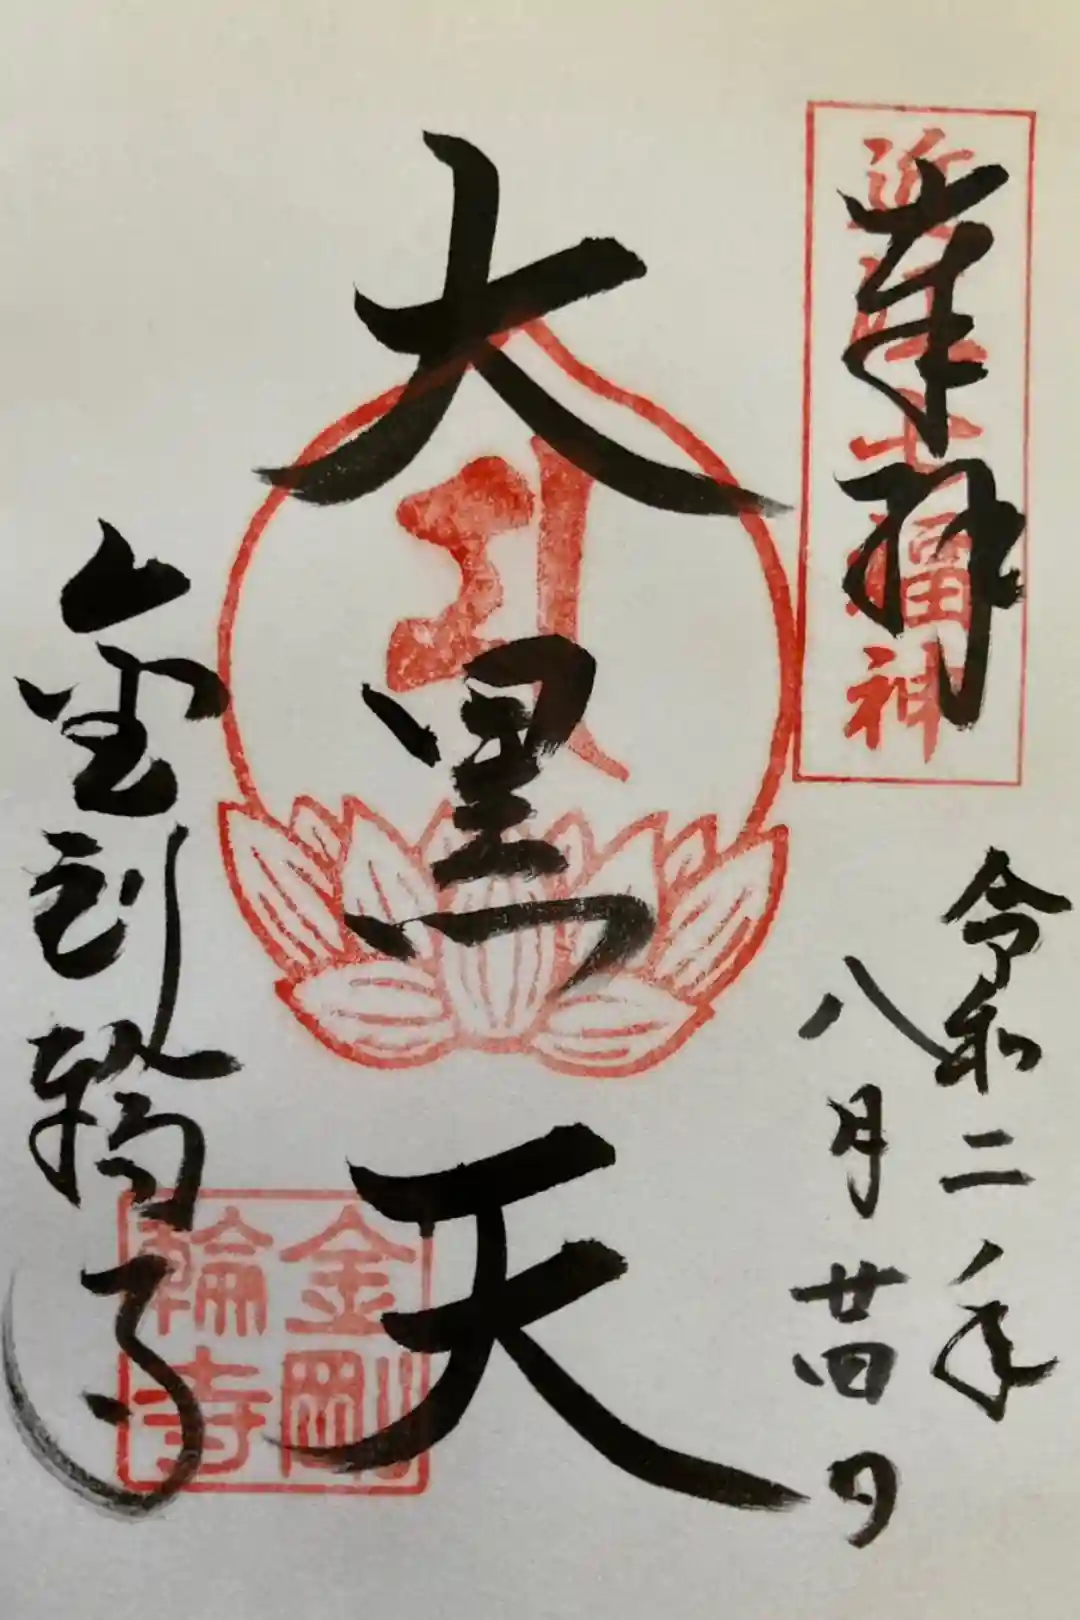 奉拝
近江七福神
令和二年
八月廿四日
大黒天
金剛輪寺
金剛
輪寺